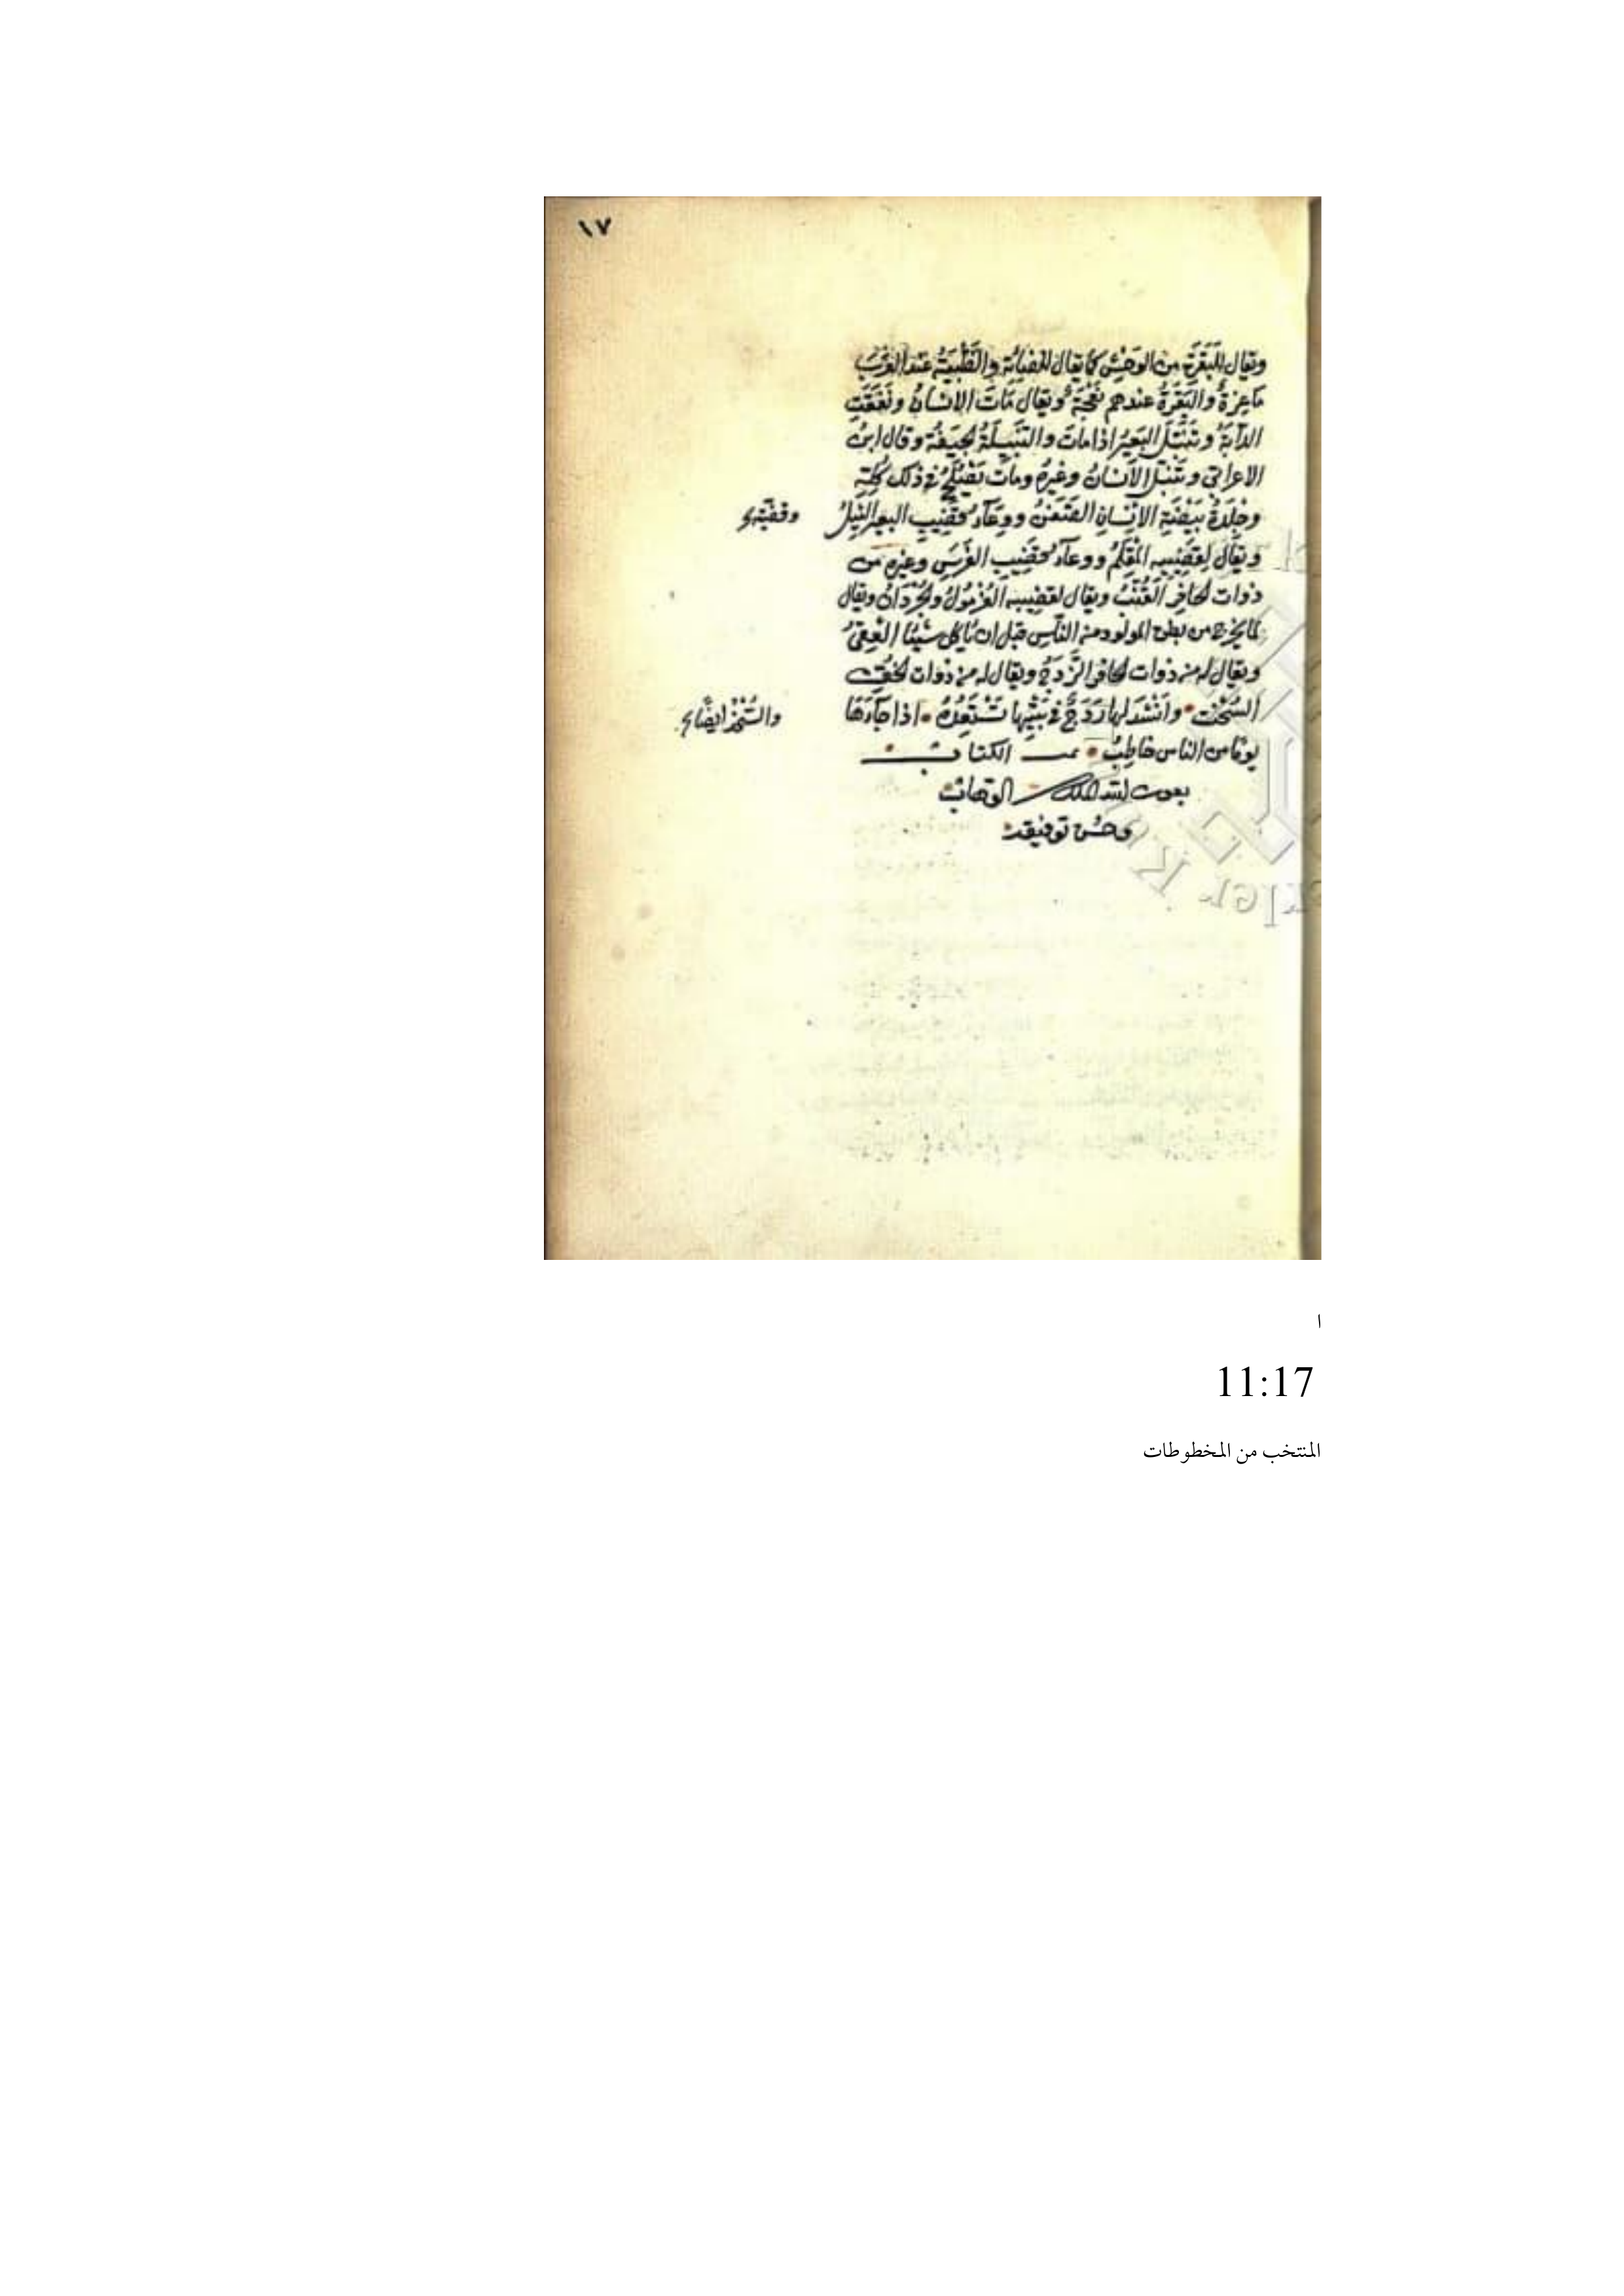 ١٧
ويقال للبَقَرَةِ من الوَحْشِ كما يقال للضائنة والظَّبْيَةُ عند العَرَبِ
مَاعِزةٌ والبَقَرَةُ عندهم نَعْجَةٌ ويقال مَاتَ الانسانُ ونَفَقَتِ
الدآبَّةُ وتَنَبَّلَ البَعِيرُ اذا مات والنَّبِيلَةُ الجيفةُ وقال ابنُ
الاعرابي وتَنَبَّلَ الانسانُ وغيرُه ومات في ذلك كُلِّه
وجِلْدَةُ بَيْضَةِ الانْسانِ الصَّفَنُ ووِعَآءُ قَضِيبِ البعير الثِّيلُ
ويقال لِقَضِيبِه المِقْلَمُ ووعآء قَضِيبِ الفَرَسِ وغيرِه من
ذوات الحافِرِ القُنْبُ ويقال لقضِيبِه الغُرْمُولُ والجُرْدَانُ ويقال
لما يخرج من بطن المولود من الناسِ قبل ان ياكل شَيْئا العِقْيُ
ويقال له من ذوات الحافر الرَّدَجُ ويقال له من ذوات الخُفِّ
السُّخْتُ وانْشَدَ لها رَدَجٌ في بَيْتِها تَسْتَعِدُّهُ اذا جآءَها
والسُّخْدُ ايضًا
يومًا من الناس خاطِبُ تمت الكتاب
بعون الله الملك الوهاب
وحسن توفيقه
ا
11:17
المنتخب من المخطوطات